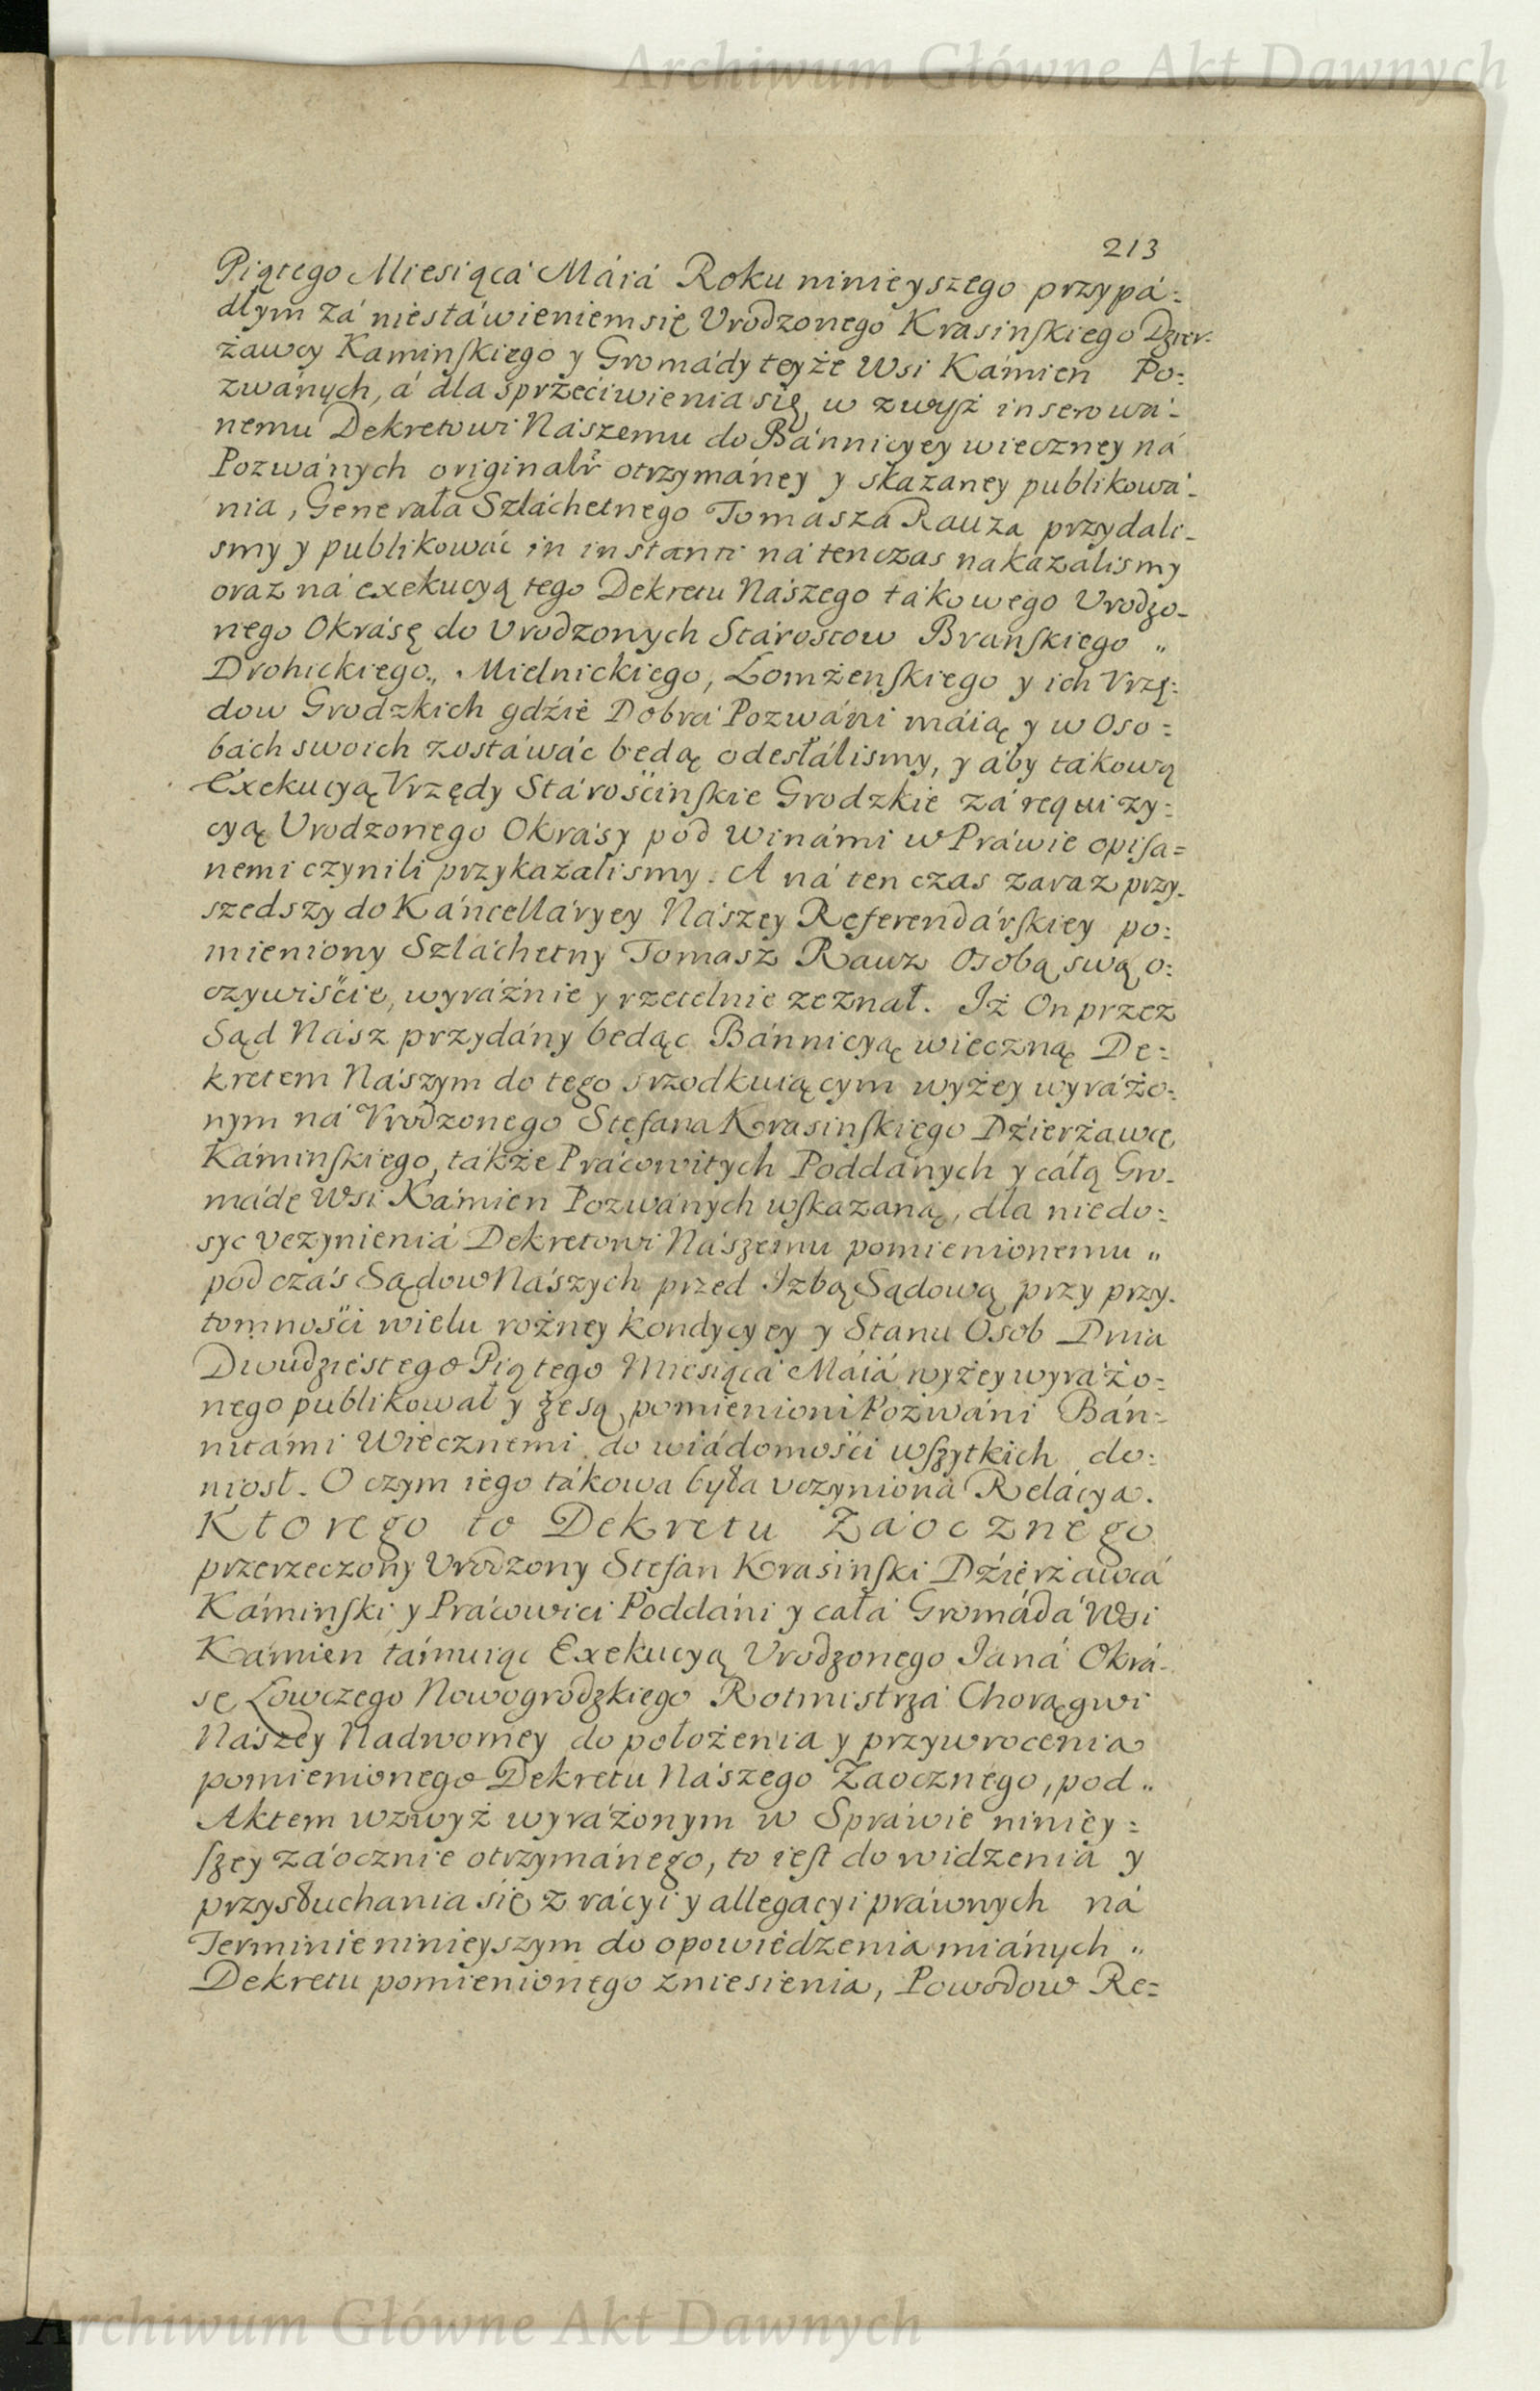 Archiwum Główne Akt Dawnych
213
Piątego Miesiąca Máiá Roku ninieyszego przypá:
dłym zá niestáwieniem się Vrodzonego Krasinskiego Dzier-
żawcy Kaminskiego y Gromády teyże Wsi Kámien Po:
zwánych, á dla sprzeciwienia się w zwysz inserowá-
nemu Dekretowi Nászemu do Bánnicyey wieczney ná
Pozwánych originalr otrzymáney y skazaney publikowá-
nia, Generała Szláchetnego Tomasza Rauza przydali-
smy y publikowáć in instanti ná tenczas nakazálismy
oraz ná exekucyą tego Dekretu Nászego tákowego Vrodzo-
nego Okrásę do Vrodzonych Stárostow Branskiego „
Drohickiego, Mielnickiego, Łomżenskiego y ich Vrzę:
dow Grodzkich gdźie Dobrá Pozwáni máią y w Oso:
bách swoich zostáwáć będą odesłálismy, y áby tákową
Exekucyą Vrzędy Stárośćinskie Grodzkie zá requizy:
cyą Urodzonego Okrásy pod winámi w Práwie opisa=
nemi czynili przykazalismy. A ná ten czas zaraz przy-
szedszy do Káncelláryey Nászey Referendárskiey po:
mieniony Szláchetny Tomasz Rauz Osobą swą o:
czywiśćie, wyráźnie y rzetelnie zeznał. Iż On przez
Sąd Nász przydány będąc Bánnicyą wieczną De:
kretem Nászym do tego srzodkuiącym wyżey wyráżo:
nym ná Vrodzonego Stefana Krasinskiego Dźierżawcę
Káminskiego, tákże Prácowitych Poddánych y cáłą Gro-
mádę Wsi Kámien Pozwánych wskazaną, dla niedo:
syc vczynienia Dekretowi Nászemu pomienionemu „
pod czás Sądow Nászych przed Izbą Sądową przy przy-
tomnośći wielu rożney kondycyey y Stanu Osob Dnia
Dwudziestego Piątego Miesiącá Máiá wyżey wyráżo:
nego publikował y że są pomienioni Pozwáni Bán-
nitámi Wiecznemi do wiádomośći wszytkich do:
niosł. O czym iego tákowa była vczyniona Relácya.
Ktorego to Dekretu Záocznego
przerzeczony Vrodzony Stefan Krasinski Dźierżawcá
Káminski y Prácowici Poddáni y cała Gromádá Wsi
Kámien támuiąc Exekucyą Vrodzonego Janá Okrá-
sę Łowczego Nowogrodzkiego Rotmistrzá Chorągwi
Nászey Nadworney do położenia y przywrocenia
pomienionego Dekretu Nászego Zaocznego, pod „
Aktem wzwyż wyráżonym w Spráwie niniey:
szey záocznie otrzymánego, to iest do widzenia y
przysłuchania się z rácyi y allegacyi práwnych ná
Terminie ninieyszym do opowiedzenia miánych „
Dekretu pomienionego zniesienia, Powodow Re=
Archiwum Główne Akt Dawnych